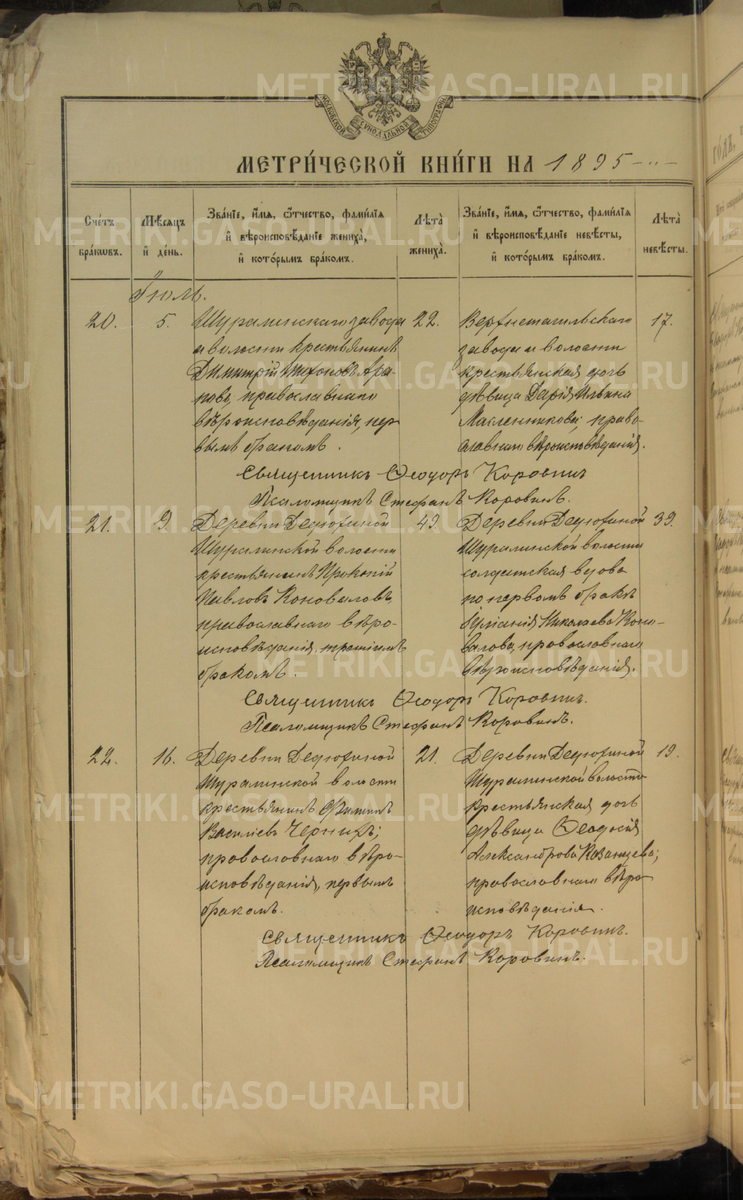 МОСКОВСКОЙ СИНОДАЛЬНОЙ ТИПОГРАФІИ
МЕТРИ́ЧЕСКОЙ КНИ́ГИ НА 1895
Сче́тъ бра́ковъ.
Мѣ́сяцъ и҆ де́нь.
Зва́нїе, и҆́мя, ѻ҆́тчество, фами́лїя и҆ вѣроисповѣ́данїе жениха̀, и҆ кото́рымъ бра́комъ.
Лѣ́та жениха̀.
Зва́нїе, и҆́мя, ѻ҆́тчество, фами́лїя и҆ вѣроисповѣ́данїе невѣ́сты, и҆ кото́рымъ бра́комъ.
Лѣ́та невѣ́сты.
Іюль.
20.
5.
Шуралинскаго завода
и волости крестьянинъ
Димитрій
православнаго
вѣроисповѣданія, пер
вымъ бракомъ.
22.
Верхнетагильскаго
завода и волости
крестьянская дочь
дѣвица Дарія Ильина
Масленникова, право
славнаго вѣроисповѣданія.
17.
Священникъ Ѳеодоръ Коровинъ
Псаломщикъ Стефанъ Коровинъ.
21.
9.
Деревни Дедюхиной
Шуралинской волости
крестьянинъ Прокопій
Павловъ Коноваловъ,
православнаго вѣро-
исповѣданія, третьимъ
бракомъ.
49.
Деревни Дедюхиной
Шуралинской волости
солдатская вдова
по первомъ бракѣ
Николаева Коно-
валова, православнаго
вѣроисповѣданія.
39.
Священникъ Ѳеодоръ Коровинъ.
Псаломщикъ Стефанъ Коровинъ.
22.
16.
Деревни Дедюхиной
Шуралинской волости
крестьянинъ Филиппъ
Василіевъ Черныхъ;
православнаго вѣро-
исповѣданія, первымъ
бракомъ.
21.
Деревни Дедюхиной
Шуралинской волости
крестьянская дочь
дѣвица Ѳеодосія
Александрова Казанцева;
православнаго вѣро
исповѣданія.
19.
Священникъ Ѳеодоръ Коровинъ.
Псаломщикъ Стефанъ Коровинъ.
METRIKI.GASO-URAL.RU